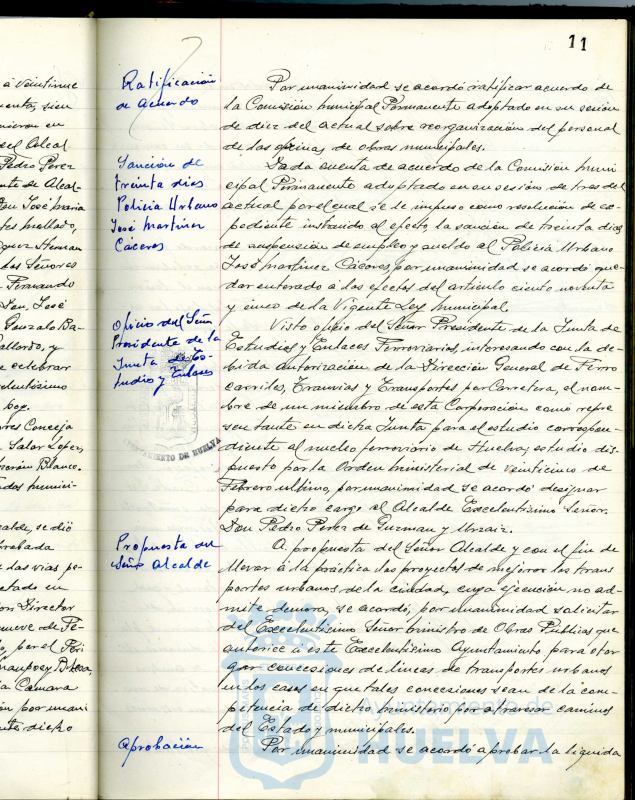 11
à veintinue
sien
en
del Alcal
Pedro Perez
te de Alcal-
Don José Maria
tes mallado,
Hernan
los Señores
Fernando
Don, José
Gonzalo Ba-
Gallardo, y
e celebrar
celentisimo
boz.
Conceja
Salas Lopez,
Blanco.
munici-
calde, se dió
las vias pe-
en
Director
nueve de Fe-
por el Peri
la Camara
por unani
dicho
Ratificación
de acuerdo
Por unanimidad se acordó ratificar acuerdo de
la Comisión municipal Permanente adoptado en su sesión
de diez del actual sobre reorganización del personal
de las oficinas, de obras municipales.
Sanción de
treinta dias
Policia Urbano
José Martinez
Cáceres
Dada cuenta de acuerdo de la Comisión muni
cipal Permanente adoptado en su sesión de tres del
actual por el cual se le impuso como resolución de ex-
pediente instruido al efecto, la sanción de treinta dias
de suspensión de empleo y sueldo al Policia Urbano
José Martinez Cáceres, por unanimidad se acordó que-
dar enterado a los efectos del articulo ciento noventa
y cinco de la Vigente Ley municipal.
Oficio del Señor
Presidente de la
Junta de Es-
tudios y Enlaces
Visto oficio del Señor Presidente de la Junta de
Estudios y Enlaces Ferroviarios, interesando con la de-
bida autorización de la Dirección General de Ferro
carriles, Tranvias y Transportes por Carretera, el nom-
bre de un miembro de esta Corporación como repre
sentante en dicha Junta para el estudio correspon-
diente al nucleo ferroviario de Huelva, estudio dis-
puesto por la Orden ministerial de veinticinco de
Febrero ultimo, por unanimidad se acordó designar
para dicho cargo al Alcalde Excelentisimo Señor.
Don Pedro Perez de Guzman y Urzaiz.
AYUNTAMIENTO DE HUELVA
Propuesta del
Señor Alcalde
A propuesta del Señor Alcalde y con el fin de
llevar à la práctica los proyectos de mejorar los trans
portes urbanos de la ciudad, cuya ejecución no ad-
mite demora, se acordó, por unanimidad solicitar
del Excelentisimo Señor ministro de Obras Publicas que
autorice a este Excelentisimo Ayuntamiento para otor
gar concesiones de lineas de transportes urbanos
en los casos en que tales concesiones sean de la com-
petencia de dicho ministerio por atravesar caminos
del Estado y municipales.
Aprobación
Por unanimidad se acordó aprobar la liquida
Ayuntamiento de
HUELVA